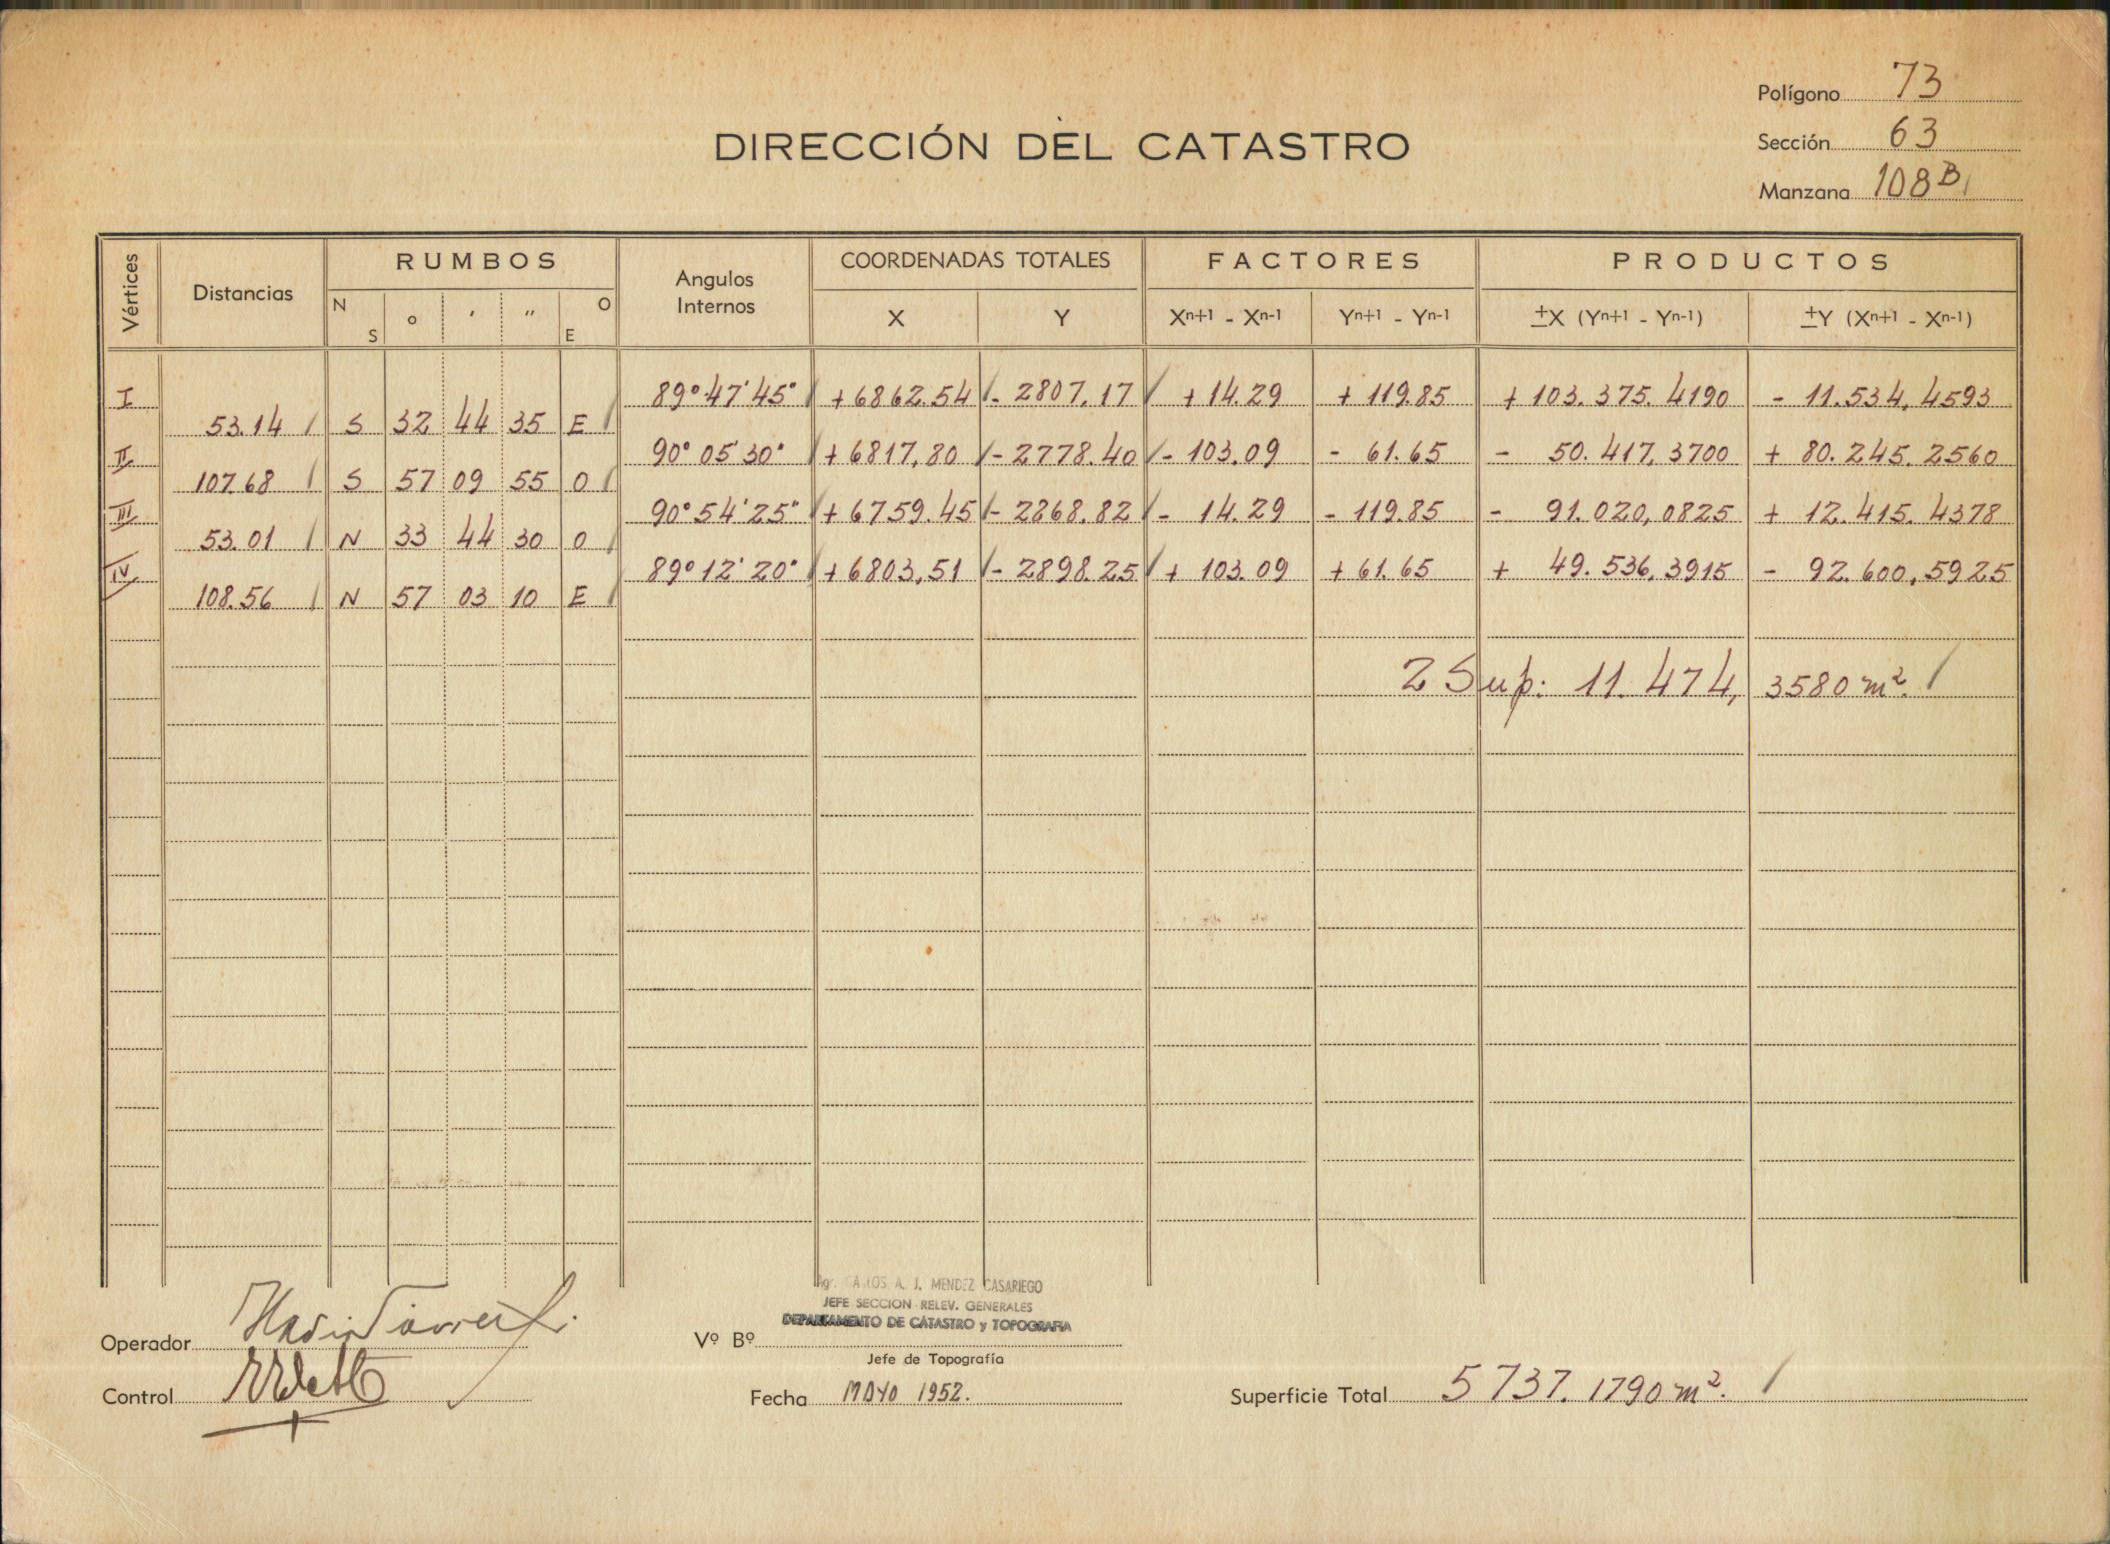 Polígono 73
DIRECCIÓN DEL CATASTRO
Sección 63
Manzana 108B
Vértices Distancias RUMBOS Angulos Internos COORDENADAS TOTALES FACTORES PRODUCTOS
N S ° ' " O E X Y Xn+1 - Xn-1 Yn+1 - Yn-1 ±X (Yn+1 - Yn-1) ±Y (Xn+1 - Xn-1)
I 89° 47' 45" +6862.54 - 2807.17 + 14.29 + 119.85 + 103.375.4190 - 11.534,4593
53.14 S 32 44 35 E
II 90° 05' 30" + 6817,80 - 2778.40 - 103.09 - 61.65 - 50.417,3700 + 80.245.2560
107.68 S 57 09 55 O
III 90° 54' 25" + 6759.45 - 2868.82 - 14.29 - 119.85 - 91.020,0825 + 12.415.4378
53.01 N 33 44 30 O
IV 89° 12' 20" + 6803,51 - 2898.25 + 103.09 + 61.65 + 49.536,3915 - 92.600,5925
108.56 N 57 03 10 E
2 Sup: 11.474, 3580 m².
Agr. CARLOS A. J. MENDEZ CASARIEGO
JEFE SECCION RELEV. GENERALES
DEPARTAMENTO DE CATASTRO y TOPOGRAFIA
Operador
Vº Bº
Jefe de Topografía
Control
Fecha MAYO 1952.
Superficie Total 5737.1790 m².